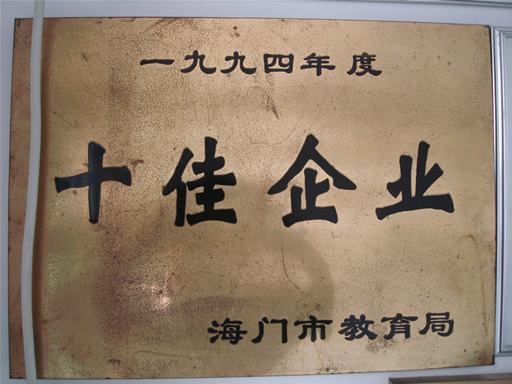 一九九四年度
十佳企业
海门市教育局